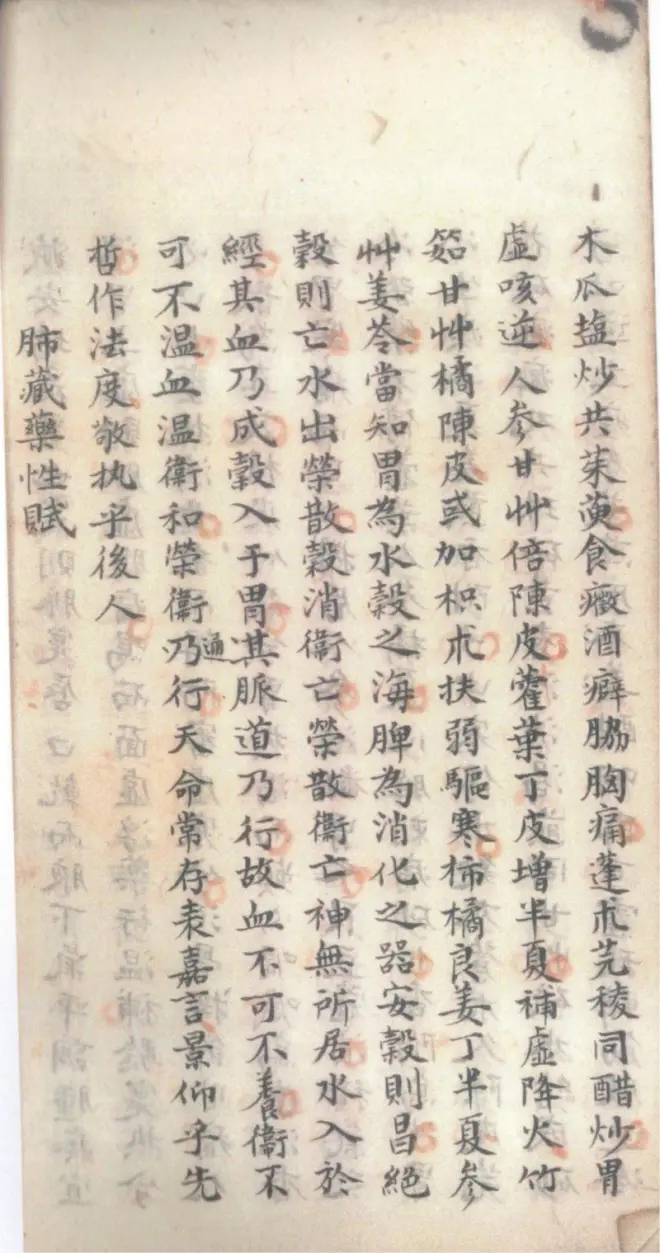 木瓜塩炒共茱萸食癥酒癖脇胸痛蓬朮芫稜同醋炒胃
虛咳逆人參甘艸倍陳皮藿葉丁皮增半夏補虛降火竹
筎甘艸橘陳皮或加枳朮扶弱驅寒柿橘良姜丁半夏參
艸姜苓當知胃為水穀之海脾為消化之器安穀則昌絕
穀則亡水出榮散穀消衛亡榮散衛亡神無所居水入於
經其血乃成穀入于胃其脈道乃行故血不可不養衛不
可不溫血溫衛和榮衛乃通行天命常存表嘉言景仰乎先
哲作法度敬执乎後人
肺藏藥性賦